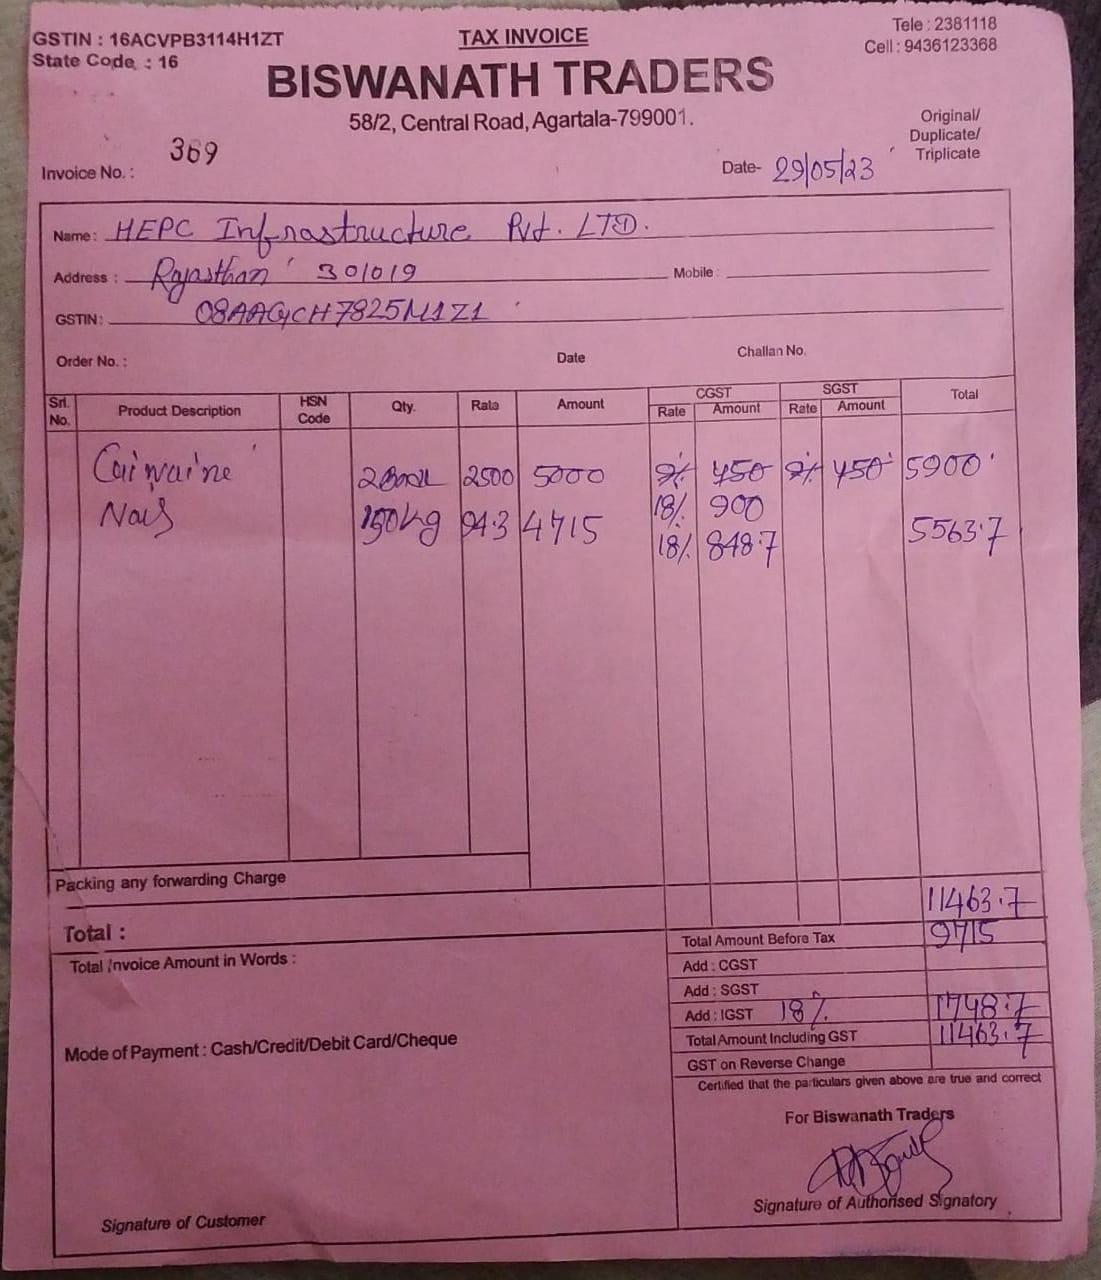 GSTIN : 16ACVPB3114H1ZT
State Code : 16
TAX INVOICE
Tele : 2381118
Cell : 9436123368
BISWANATH TRADERS
58/2, Central Road, Agartala-799001.
Original/
Duplicate/
Triplicate
Invoice No. : 369
Date- 29/05/23
Name : HEPC Infrastructure Pvt. LTD.
Address : Rajasthan 301019 Mobile :
GSTIN: 08AAGCH7825M1Z1
Order No. : Date Challan No.
Srl. No. Product Description HSN Code Qty. Rate Amount CGST Rate Amount SGST Rate Amount Total
2500 5000 9% 450 9% 450 5900
18% 900
150kg 94.3 4715 18% 848.7 5563.7
Packing any forwarding Charge
Total : 11463.7
Total Invoice Amount in Words :
Total Amount Before Tax 9715
Add : CGST
Add : SGST
Add : IGST 18% 1748.7
Mode of Payment : Cash/Credit/Debit Card/Cheque
Total Amount Including GST 11463.7
GST on Reverse Change
Certified that the particulars given above are true and correct
For Biswanath Traders
Signature of Authorised Signatory
Signature of Customer